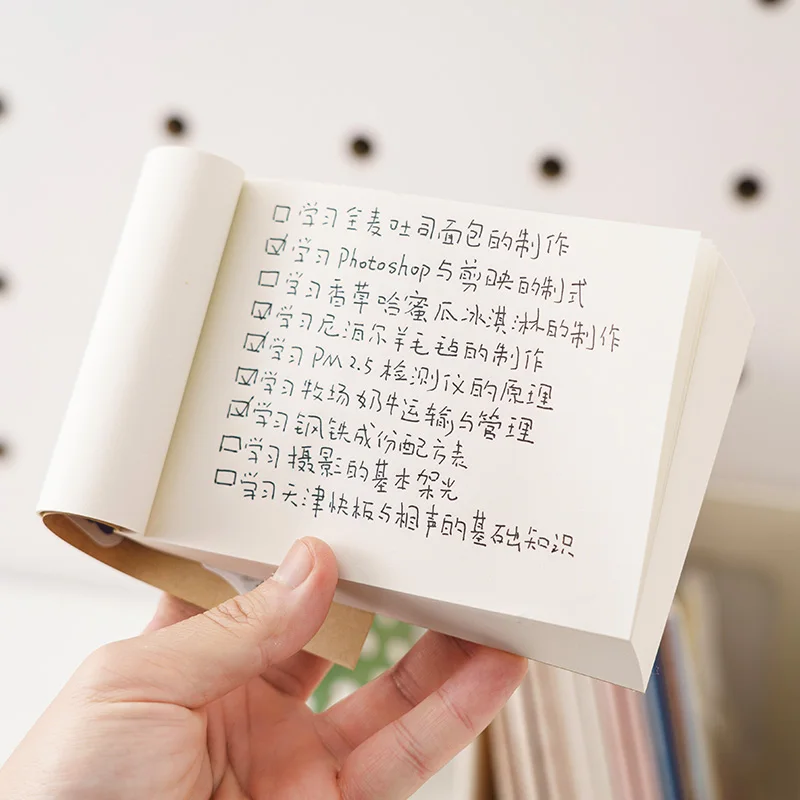 ☐学习全麦吐司面包的制作
☑学习Photoshop与剪映的制式
☐学习香草哈蜜瓜冰淇淋的制作
☑学习尼泊尔羊毛毡的制作
☑学习PM2.5检测仪的原理
☑学习牧场奶牛运输与管理
☑学习钢铁成份配方表
☐学习摄影的基本架光
☐学习天津快板与相声的基础知识